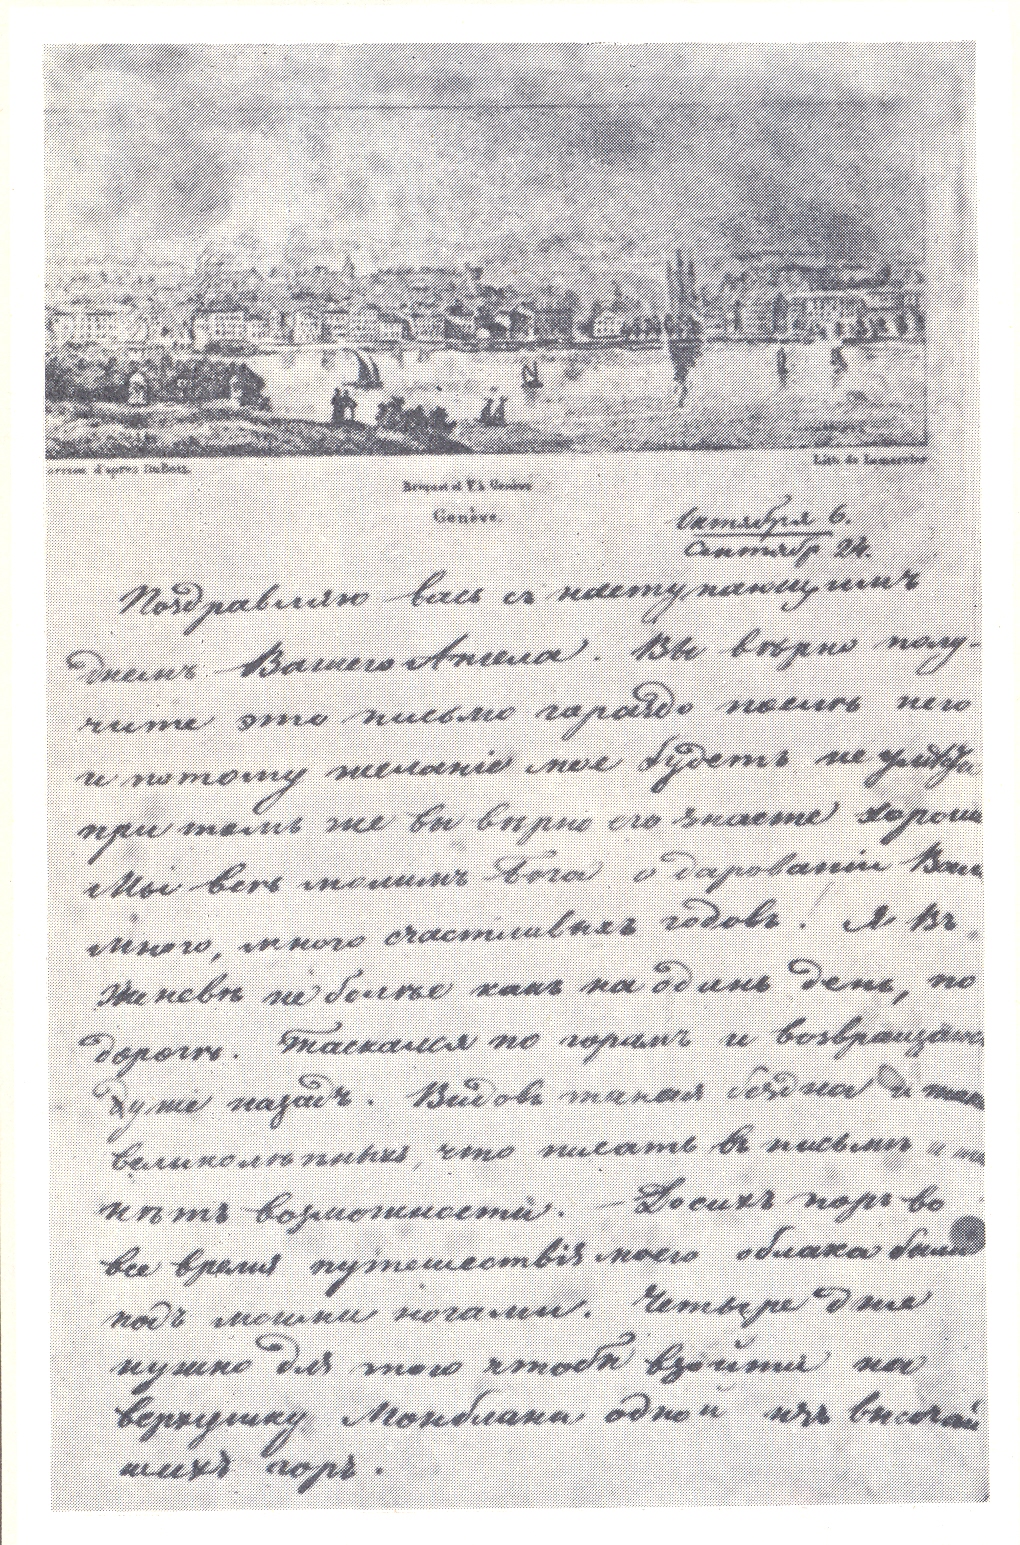 d'après DuBois.
Lith. de Lemercier
Briquet et F. à Genève
Genève.
Октября 6.
Сентябр 24.
Поздравляю васъ съ наступающимъ
днемъ Вашего Ангела. Вы вѣрно полу-
чите это письмо гараздо послѣ него
и потому желаніе мое будетъ не
при томъ же вы вѣрно его знаете хорошо
Мы всѣ молимъ Бога о дарованіи Вам
много, много счастливыхъ годовъ! Я въ
Женевѣ не болѣе какъ на одинъ день, по
дорогѣ. Таскался по горамъ и возвращаюс
уже назадъ. Видовъ такая бездна и
великолѣпныхъ, что писать въ письмѣ и
нѣтъ возможности. — Досихъ поръ во
все время путешествія моего облака были
подъ моими ногами. Четыре дня
нужно для того чтобы взойти на
верхушку Монблана одной изъ высочай
шихъ горъ.